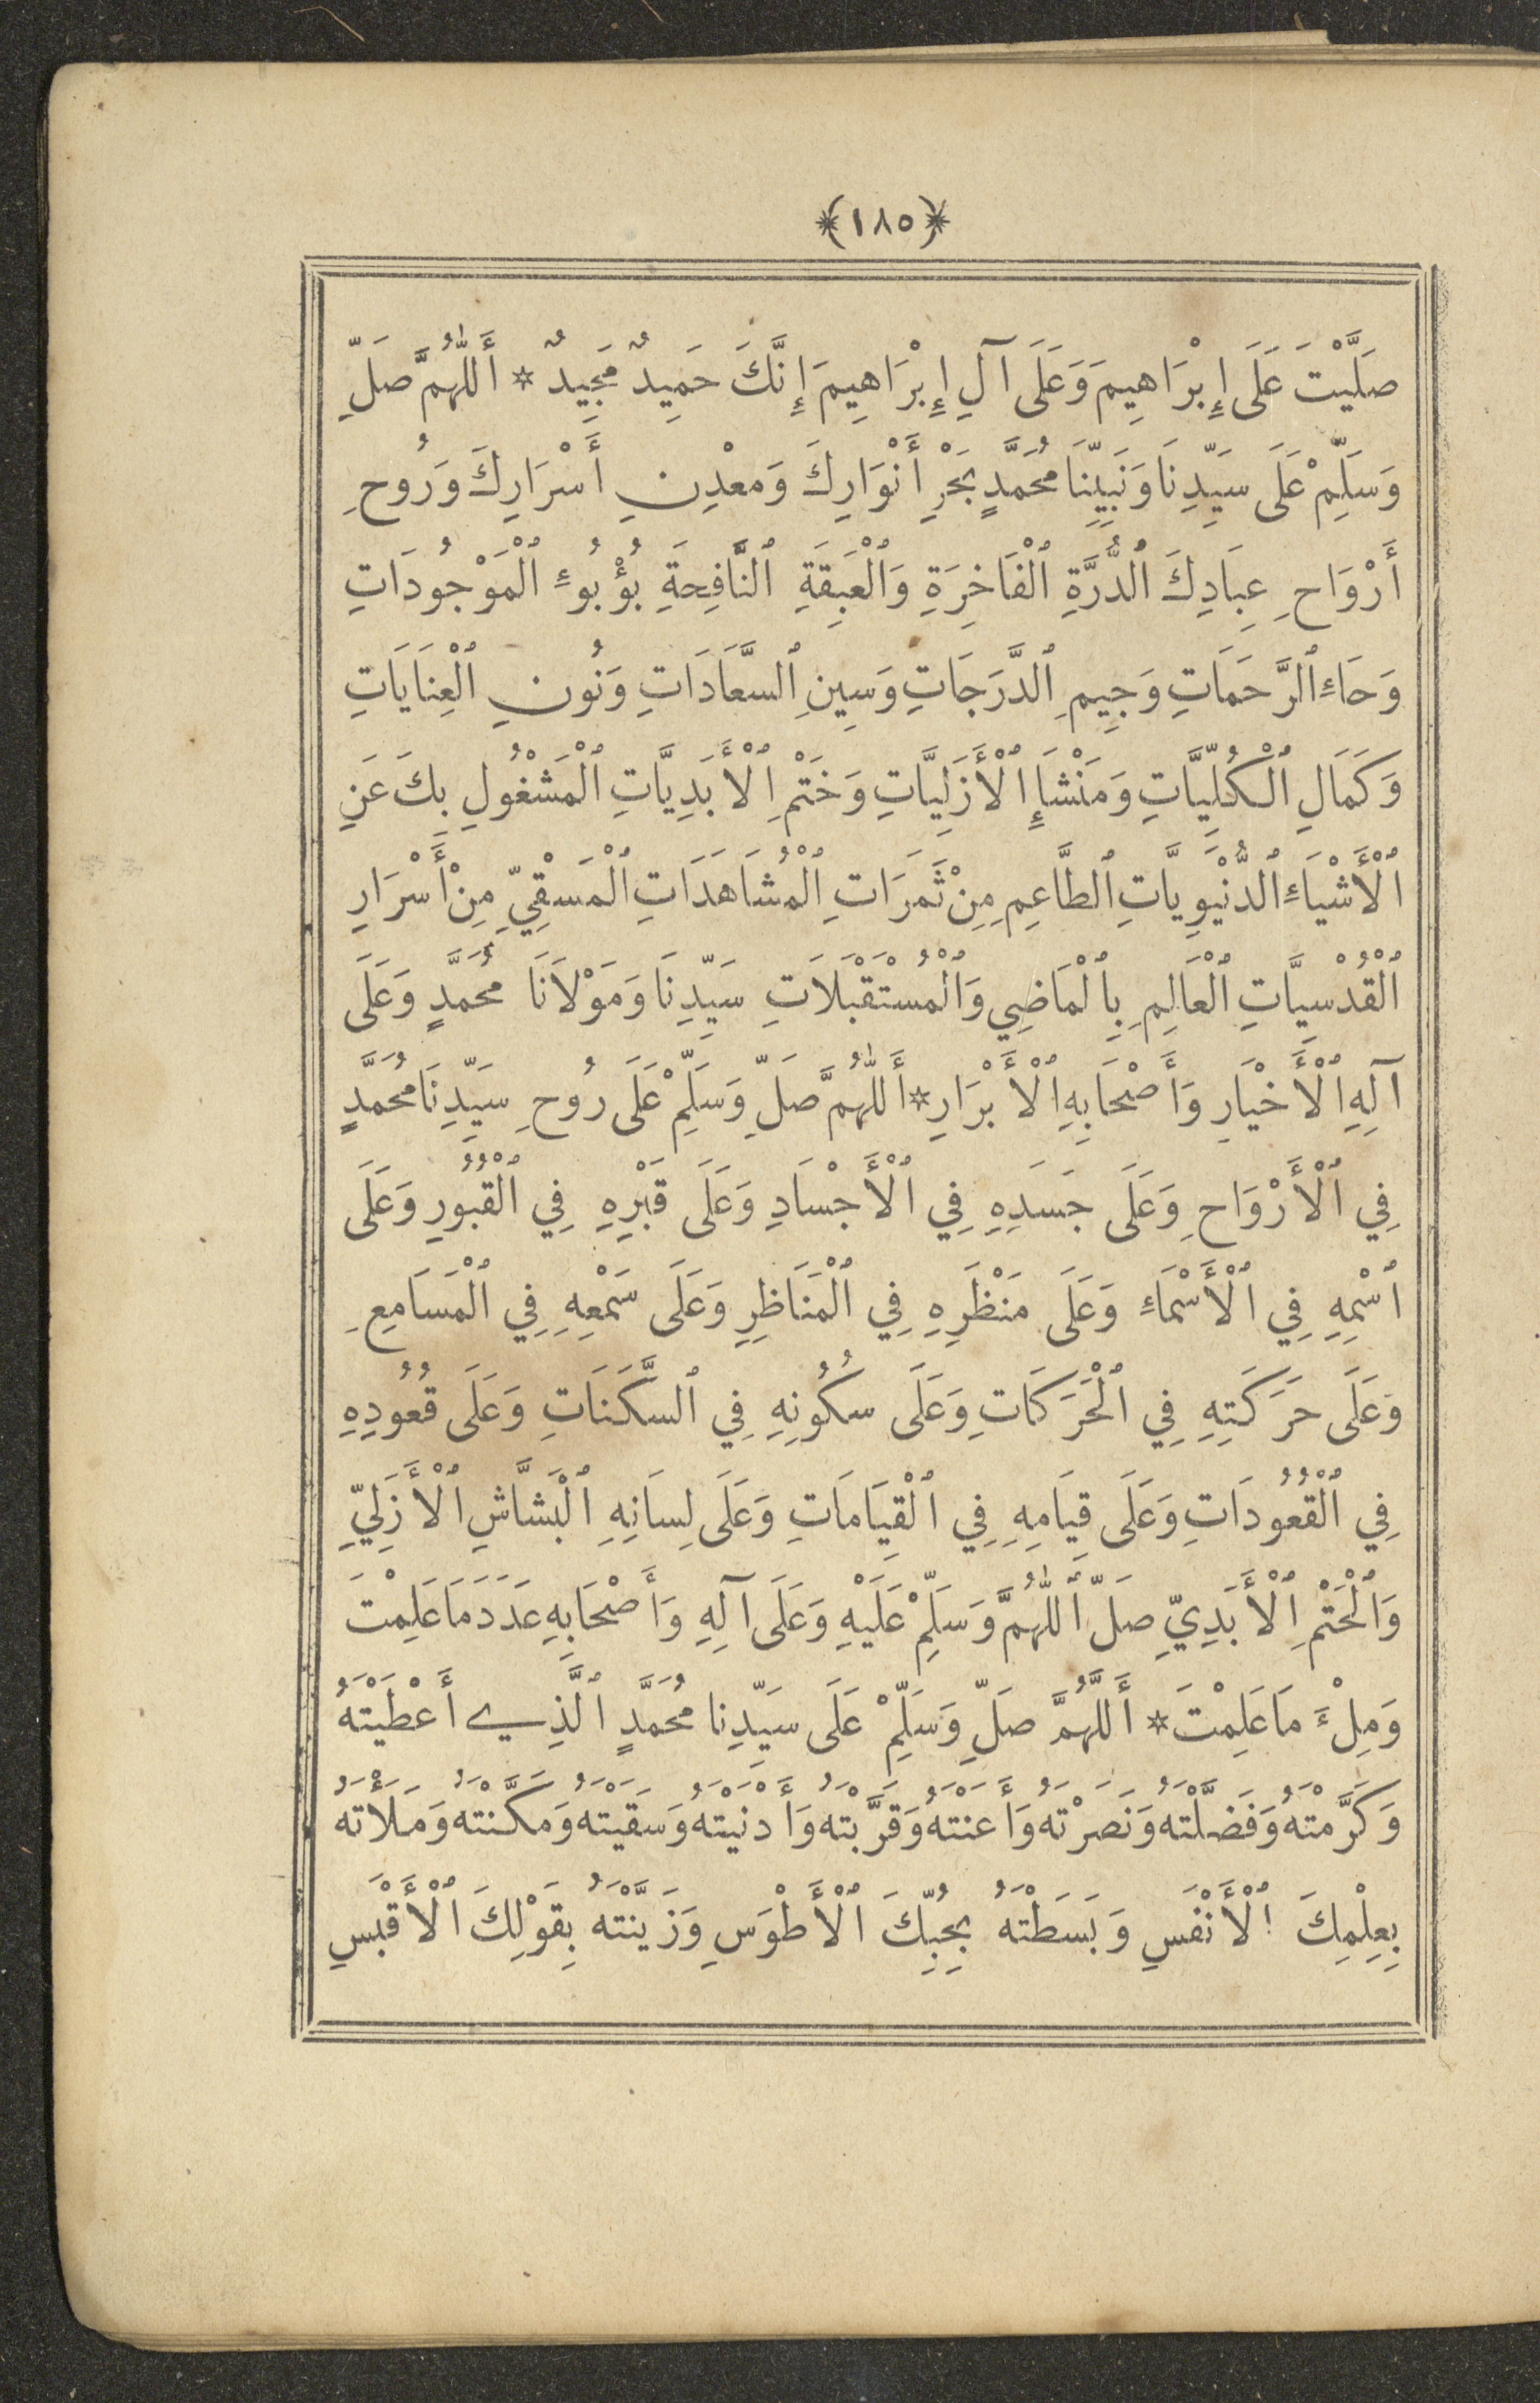 ﴿١٨٥﴾
صَلَّيْتَ عَلَى إِبْرَاهِيمَ وَعَلَى آلِ إِبْرَاهِيمَ إِنَّكَ حَمِيدٌ مَجِيدٌ * أَللّٰهُمَّ صَلِّ
وَسَلِّمْ عَلَى سَيِّدِنَا وَنَبِيِّنَا مُحَمَّدٍ بَحْرِ أَنْوَارِكَ وَمَعْدِنِ أَسْرَارِكَ وَرُوحِ
أَرْوَاحِ عِبَادِكَ ٱلدُّرَّةِ ٱلْفَاخِرَةِ وَٱلْعَبِقَةِ ٱلنَّافِحَةِ بُؤْبُوءِ ٱلْمَوْجُودَاتِ
وَحَاءِ ٱلرَّحَمَاتِ وَجِيمِ ٱلدَّرَجَاتِ وَسِينِ ٱلسَّعَادَاتِ وَنُونِ ٱلْعِنَايَاتِ
وَكَمَالِ ٱلْكُلِّيَّاتِ وَمَنْشَإِ ٱلْأَزَلِيَّاتِ وَخَتْمِ ٱلْأَبَدِيَّاتِ ٱلْمَشْغُولِ بِكَ عَنِ
ٱلْأَشْيَاءِ ٱلدُّنْيَوِيَّاتِ ٱلطَّاعِمِ مِنْ ثَمَرَاتِ ٱلْمُشَاهَدَاتِ ٱلْمَسْقِيِّ مِنْ أَسْرَارِ
ٱلْقُدْسِيَّاتِ ٱلْعَالِمِ بِٱلْمَاضِي وَٱلْمُسْتَقْبَلَاتِ سَيِّدِنَا وَمَوْلَانَا مُحَمَّدٍ وَعَلَى
آلِهِ ٱلْأَخْيَارِ وَأَصْحَابِهِ ٱلْأَبْرَارِ * أَللّٰهُمَّ صَلِّ وَسَلِّمْ عَلَى رُوحِ سَيِّدِنَا مُحَمَّدٍ
فِي ٱلْأَرْوَاحِ وَعَلَى جَسَدِهِ فِي ٱلْأَجْسَادِ وَعَلَى قَبْرِهِ فِي ٱلْقُبُورِ وَعَلَى
ٱسْمِهِ فِي ٱلْأَسْمَاءِ وَعَلَى مَنْظَرِهِ فِي ٱلْمَنَاظِرِ وَعَلَى سَمْعِهِ فِي ٱلْمَسَامِعِ
وَعَلَى حَرَكَتِهِ فِي ٱلْحَرَكَاتِ وَعَلَى سُكُونِهِ فِي ٱلسَّكَنَاتِ وَعَلَى قُعُودِهِ
فِي ٱلْقُعُودَاتِ وَعَلَى قِيَامِهِ فِي ٱلْقِيَامَاتِ وَعَلَى لِسَانِهِ ٱلْبَشَّاشِ ٱلْأَزَلِيِّ
وَٱلْخَتْمِ ٱلْأَبَدِيِّ صَلِّ أَللّٰهُمَّ وَسَلِّمْ عَلَيْهِ وَعَلَى آلِهِ وَأَصْحَابِهِ عَدَدَ مَا عَلِمْتَ
وَمِلْءَ مَا عَلِمْتَ * أَللّٰهُمَّ صَلِّ وَسَلِّمْ عَلَى سَيِّدِنَا مُحَمَّدٍ ٱلَّذِي أَعْطَيْتَهُ
وَكَرَّمْتَهُ وَفَضَّلْتَهُ وَنَصَرْتَهُ وَأَعَنْتَهُ وَقَرَّبْتَهُ وَأَدْنَيْتَهُ وَسَقَيْتَهُ وَمَكَّنْتَهُ وَمَلَأْتَهُ
بِعِلْمِكَ ٱلْأَنْفَسِ وَبَسَطْتَهُ بِحُبِّكَ ٱلْأَطْوَسِ وَزَيَّنْتَهُ بِقَوْلِكَ ٱلْأَقْبَسِ